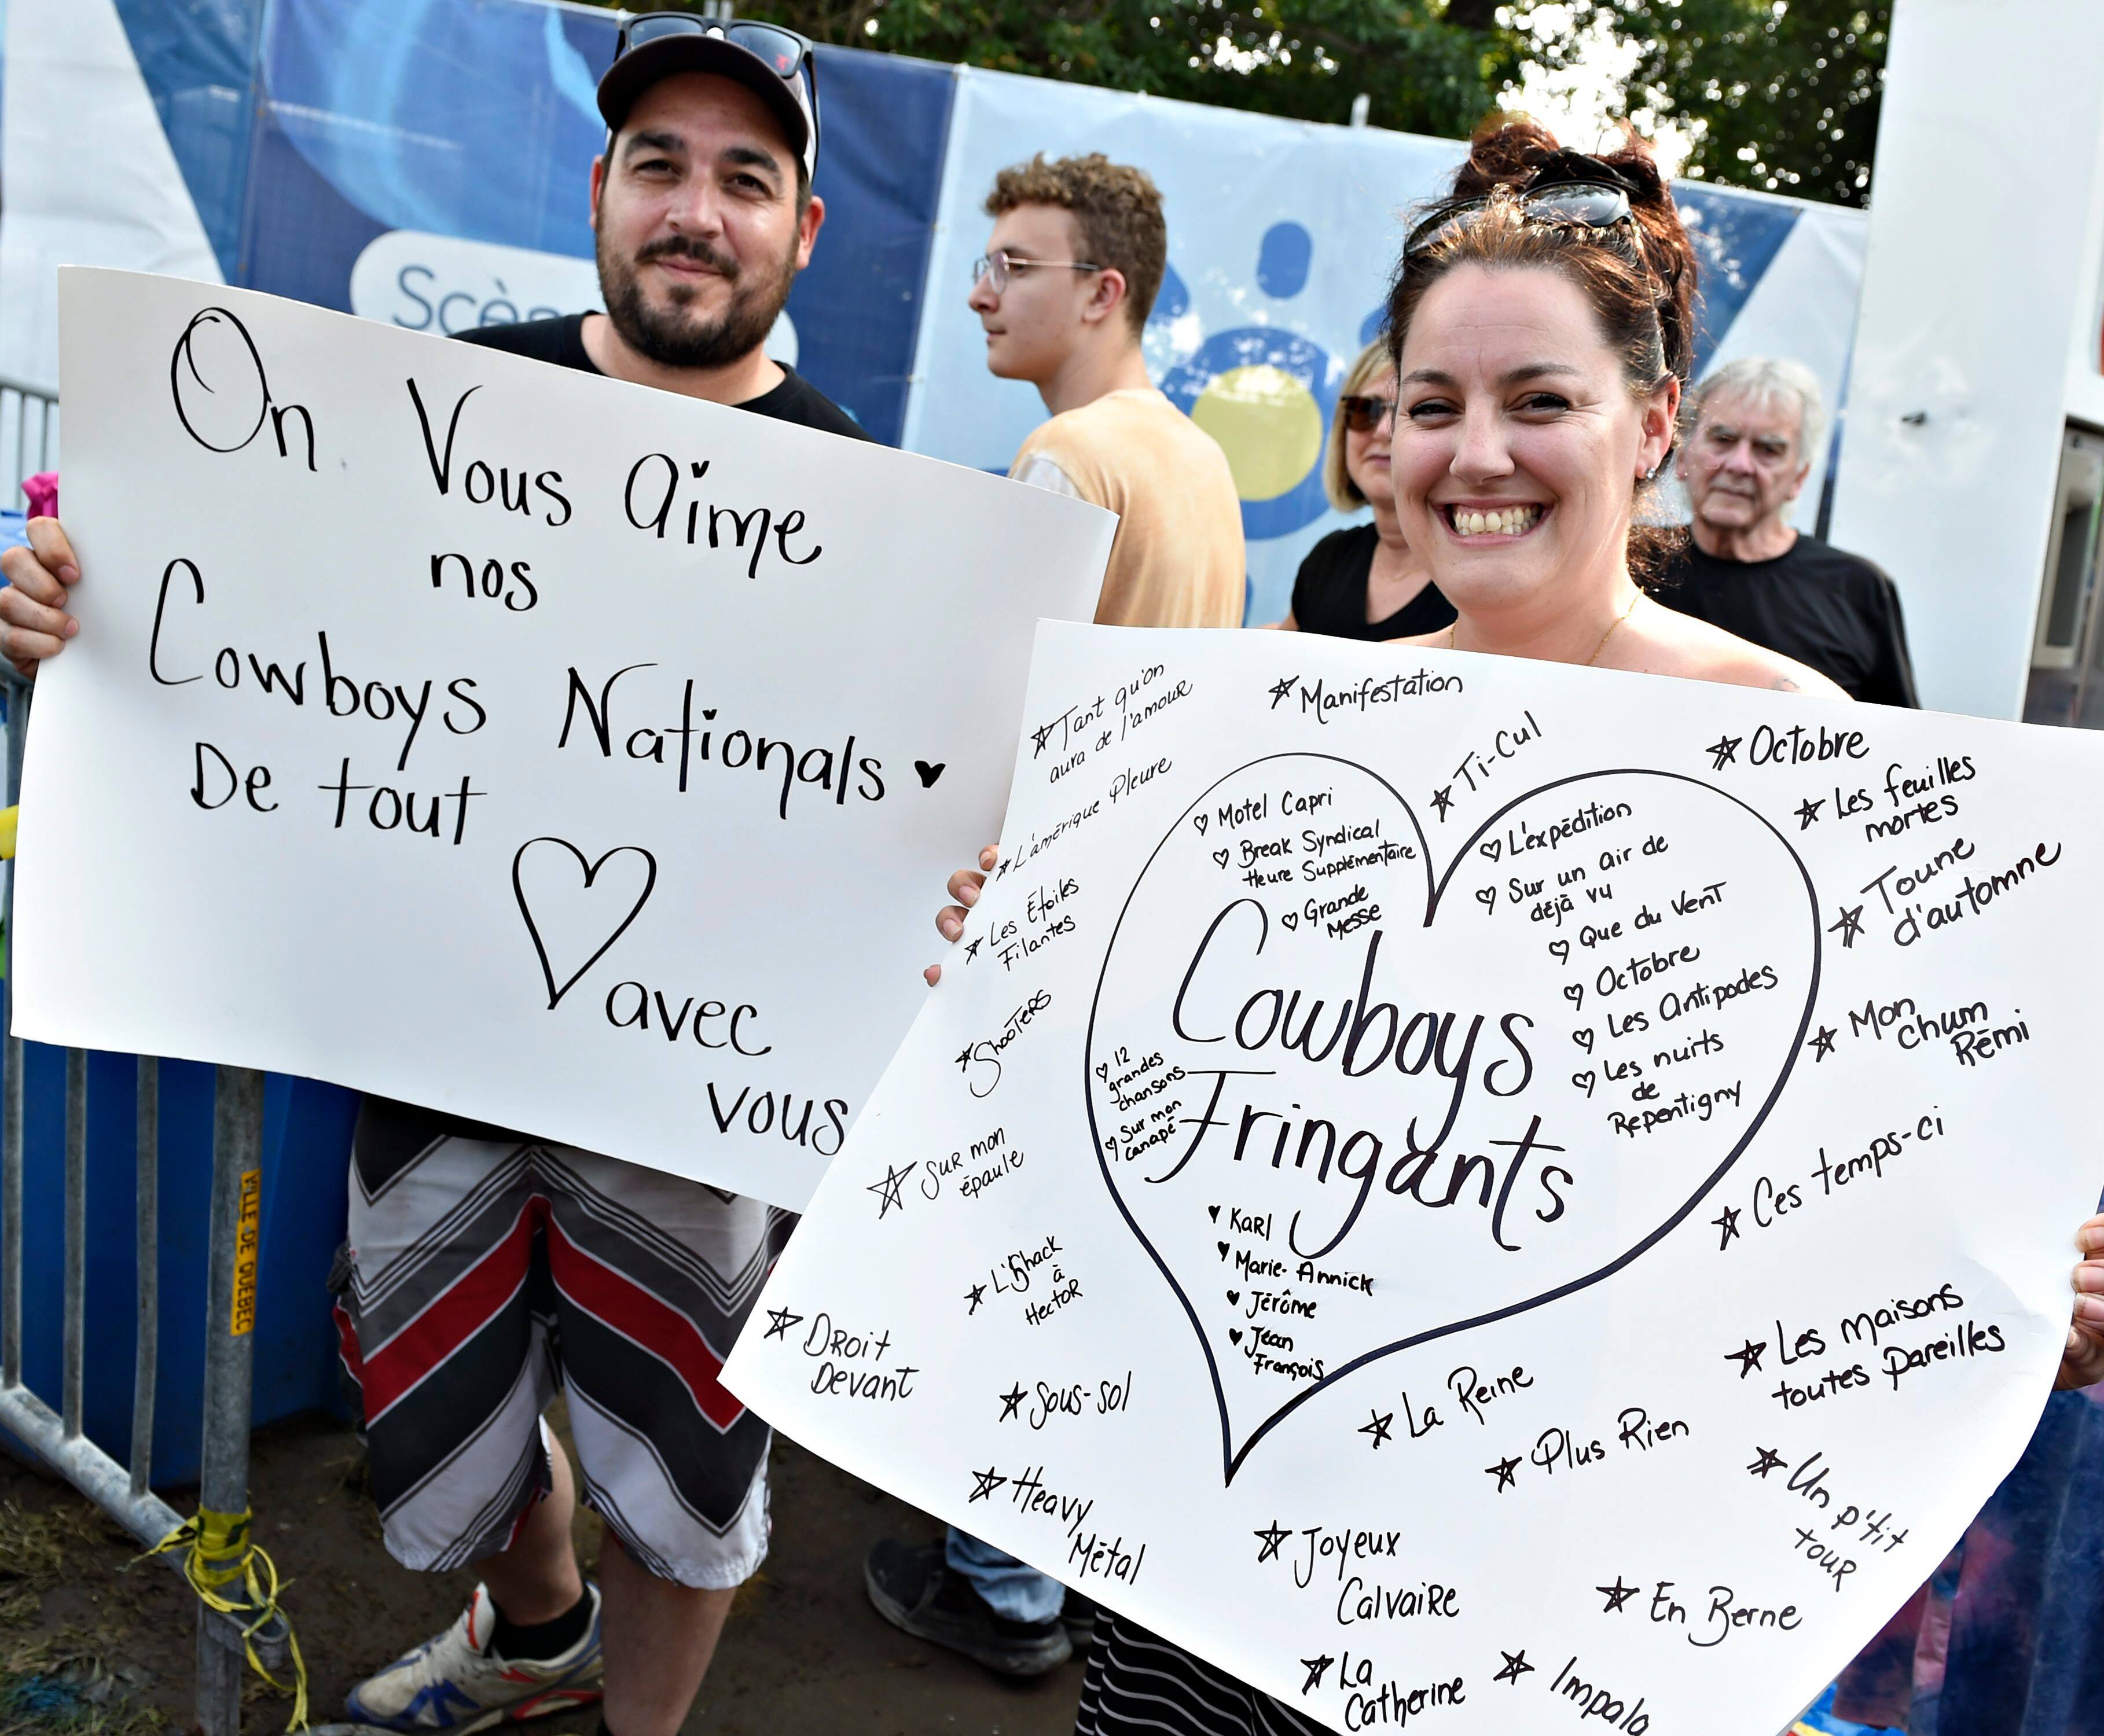 On Vous aime
nos
Cowboys Nationals
De tout
avec
vous
VILLE DE QUEBEC
Tant qu'on
aura de l'amour
L'amérique Pleure
Les Étoiles
Filantes
Shooters
Sur mon
épaule
L'Shack
à
Hector
Droit
Devant
Sous-sol
Heavy
Métal
Manifestation
Ti-Cul
Octobre
Les feuilles
mortes
Toune
d'automne
Mon
Chum
Rémi
Ces temps-ci
Les Maisons
toutes pareilles
Un p'tit
tour
La Reine
Plus Rien
Joyeux
Calvaire
En Berne
La
Catherine
Impala
Motel Capri
Break Syndical
Heure Supplémentaire
Grande
Messe
L'expédition
Sur un air de
déjà vu
Que du Vent
Octobre
Les Antipodes
Les nuits
de
Repentigny
Cowboys
Fringants
12
grandes
chansons
Sur mon
canapé
Karl
Marie-Annick
Jérôme
Jean
François